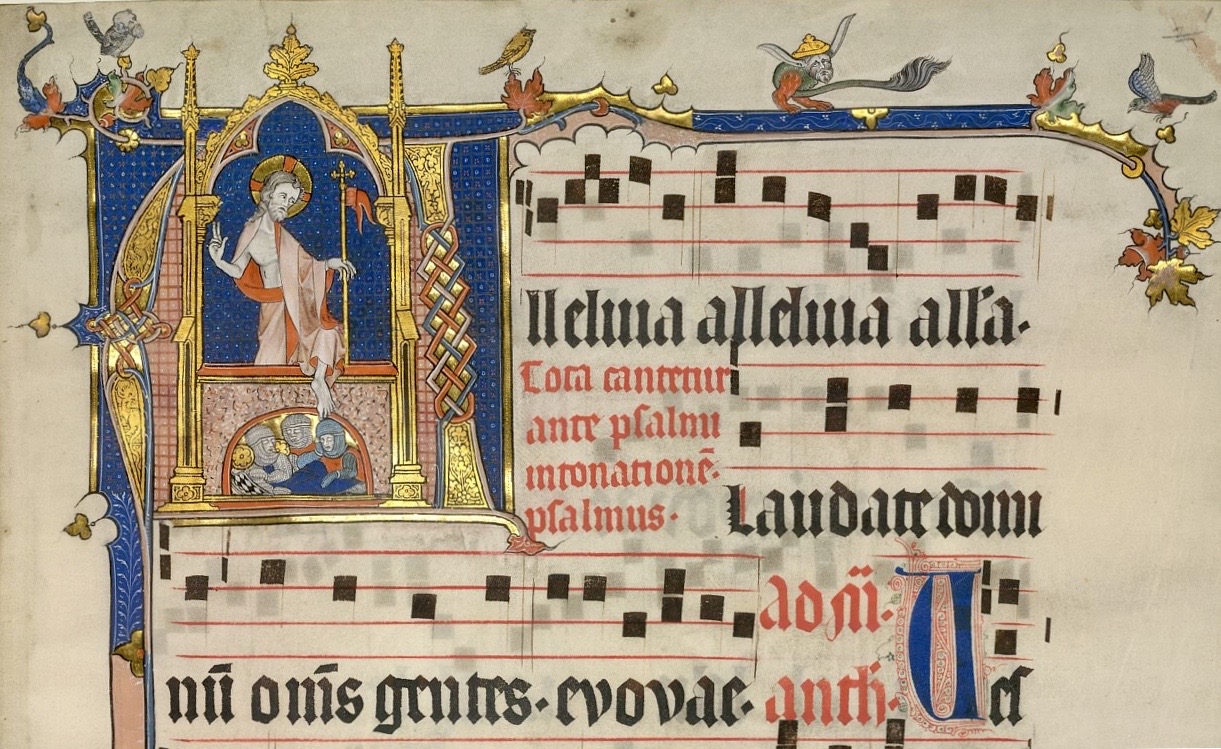 Alleluia alleluia alla·
Tota cantetur
ante psalmi
intonationē·
psalmus· Laudate domi
nū om̄s gentes· evovae· Ad m̄· anth· Ves